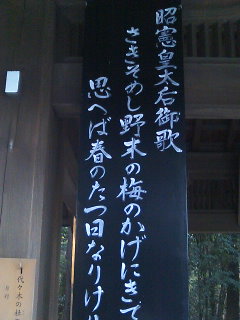 昭憲皇太后御歌
さきそめし野末の梅のかげにきて
思へば春のたつ日なりけり
代々木の杜